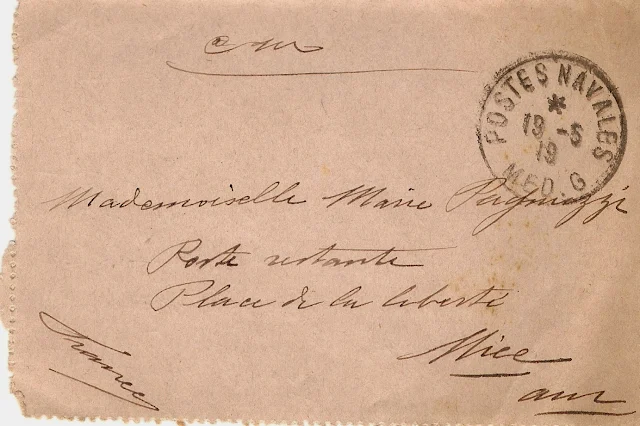 POSTES NAVALES
*
19 -5
19
MED. G
Mademoiselle Marie
Poste restante
Place de la liberté
Nice
France